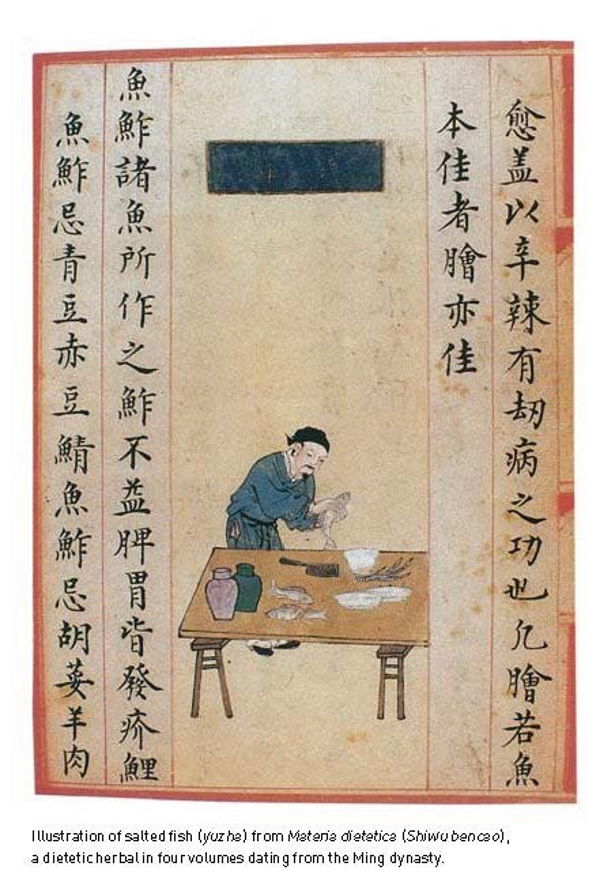 愈盖以辛辣有刼病之功也凡膾若魚
本佳者膾亦佳
魚鮓諸魚所作之鮓不益脾胃皆發疥鯉
魚鮓忌青豆赤豆鯖魚鮓忌胡荽羊肉
Illustration of salted fish (yuzha) from Materia dietetica (Shiwu bencao),
a dietetic herbal in four volumes dating from the Ming dynasty.